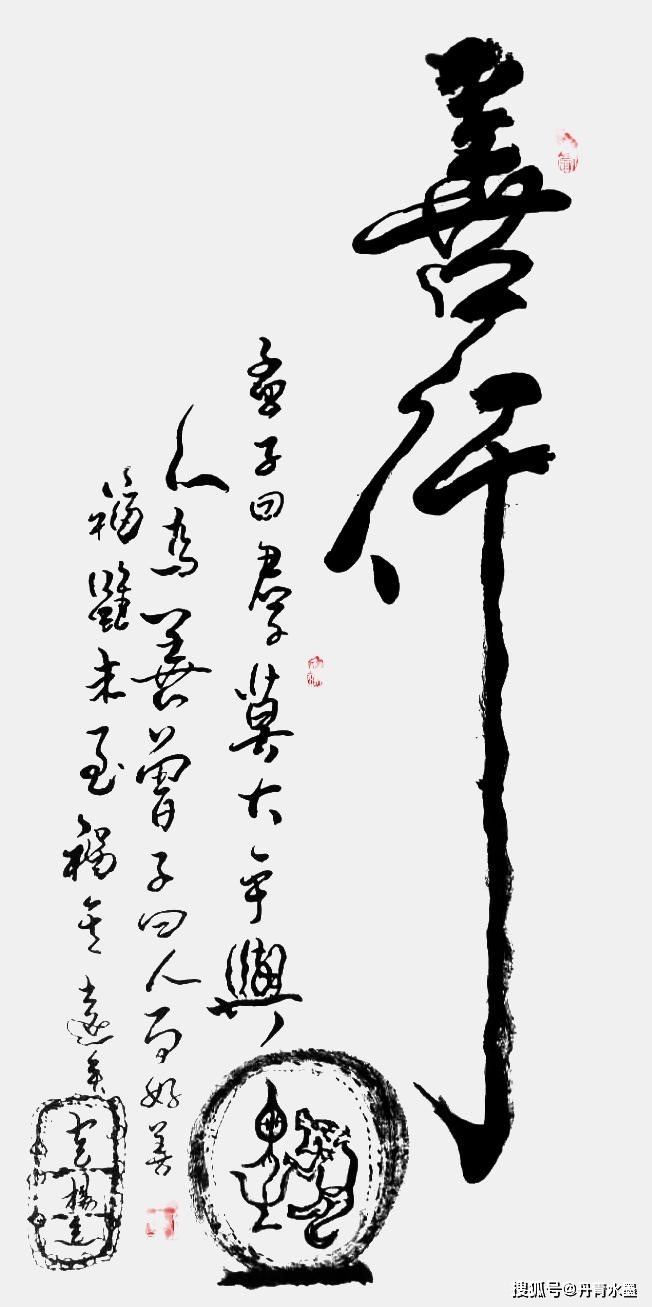 善行
孟子曰君子莫大乎與
人為善曾子曰人而好善
福雖未至禍其遠矣
搜狐号@丹青水墨